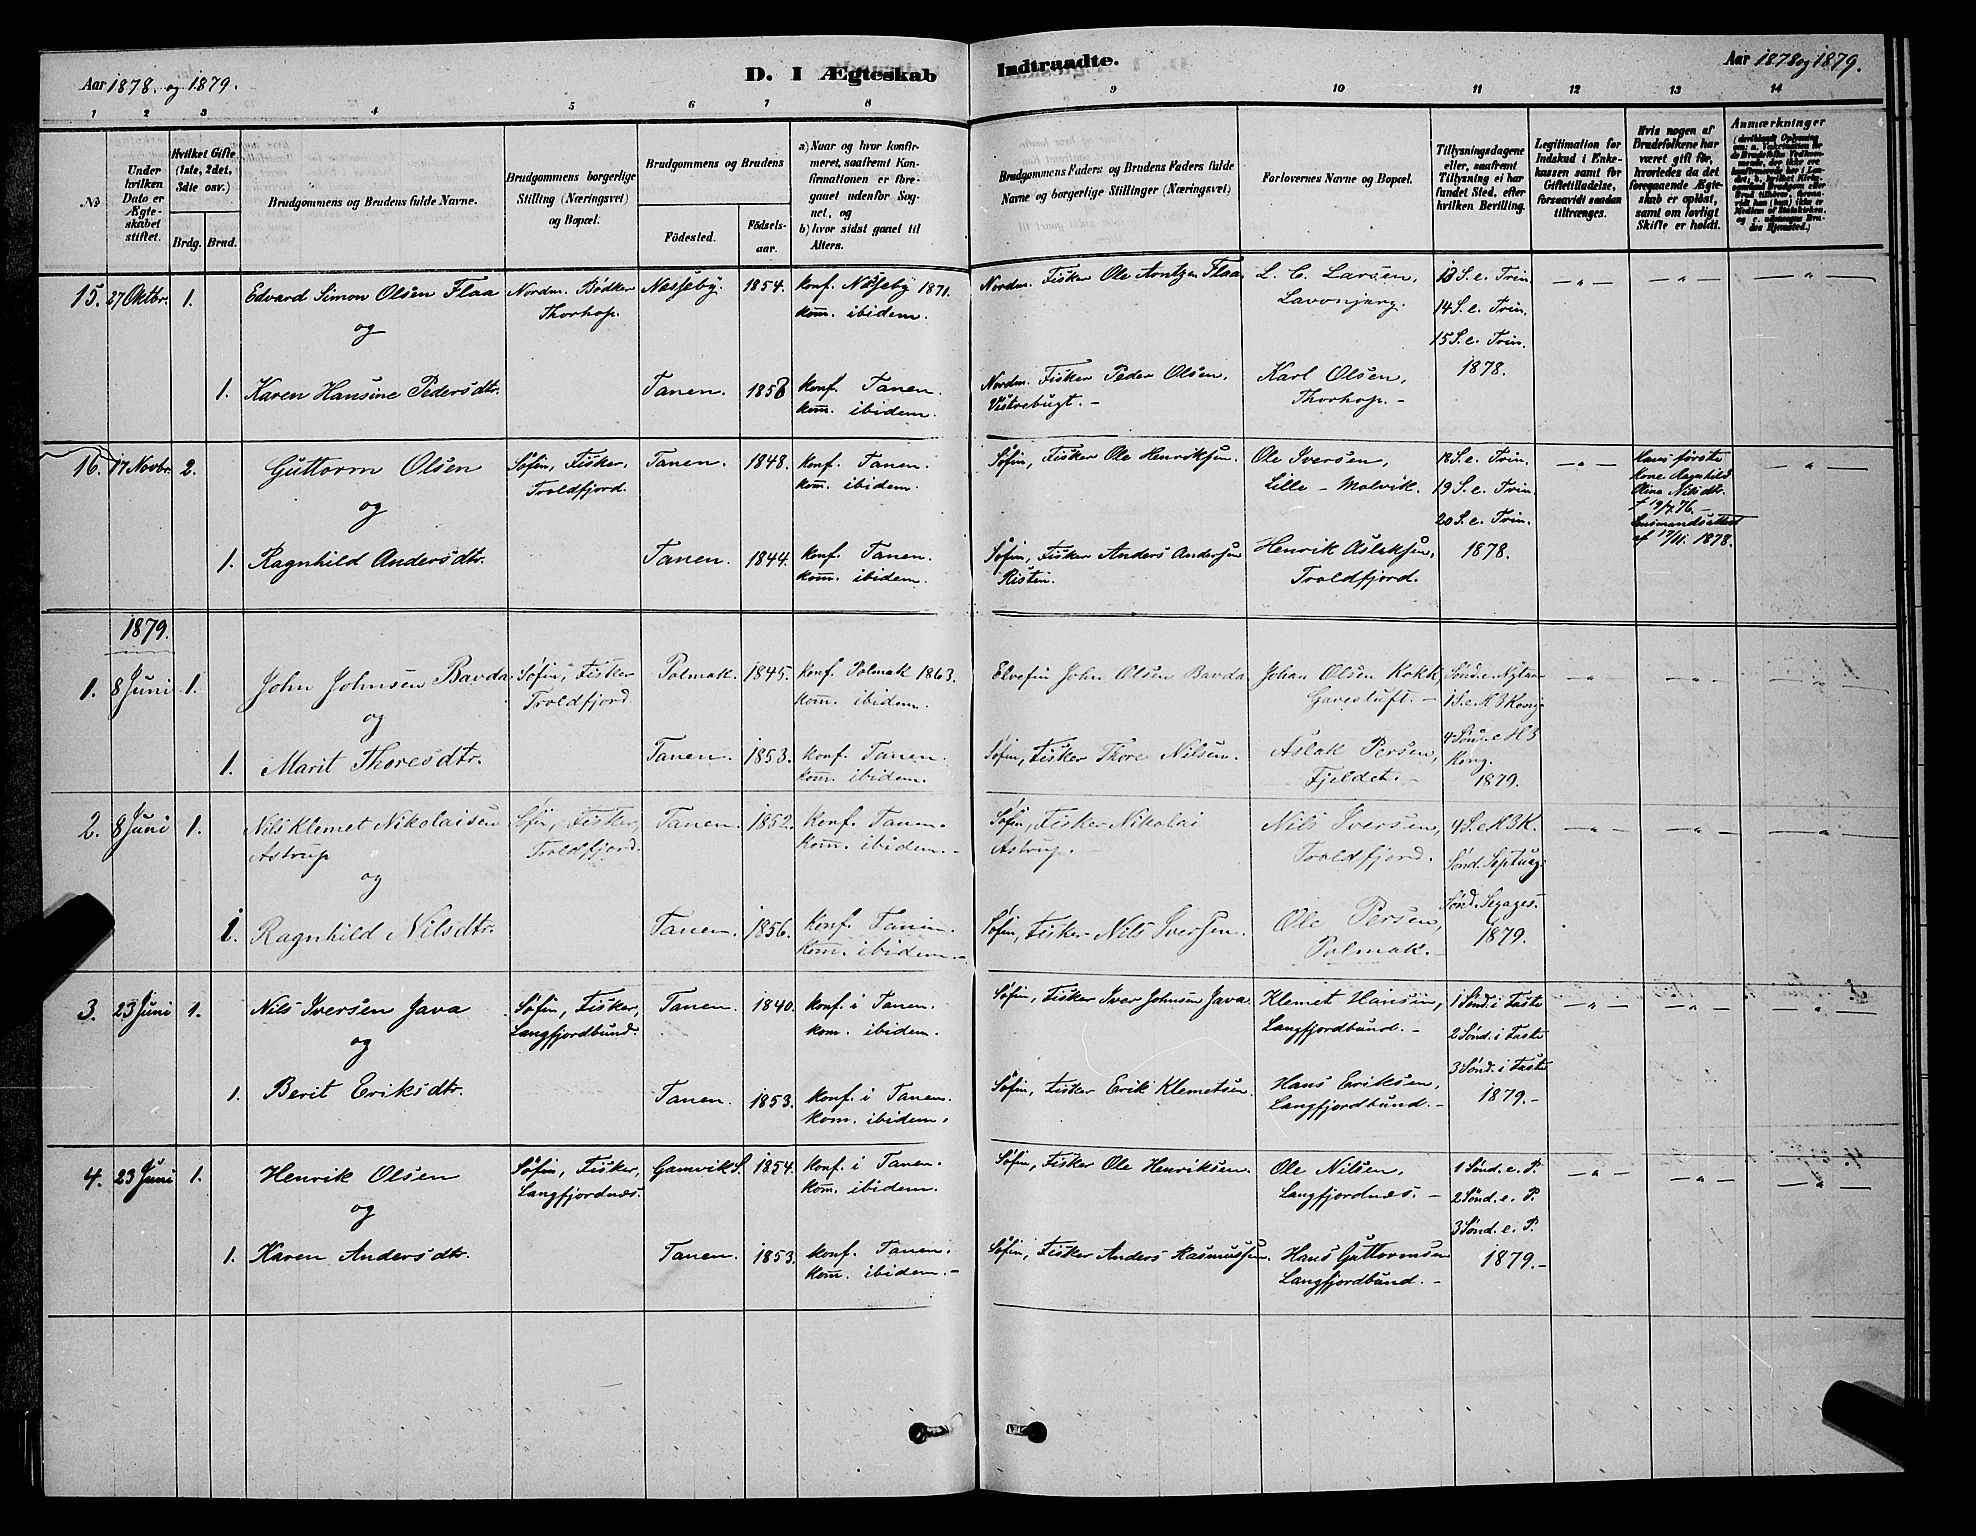 Aar 1878. og 1879.
D. I Ægteskab Indtraadte.
Aar 1878 og 1879.
1 2 3 4 5 6 7 8 9 10 11 12 13 14
No
Under hvilken Dato er Ægteskabet stiftet.
Hvilket Gifte (1ste, 2det, 3die osv.)
Brdg. Brud.
Brudgommens og Brudens fulde Navne.
Brudgommens borgerlige Stilling (Næringsvei) og Bopæl.
Brudgommens og Brudens
Födested.
Födselsaar.
a) Naar og hvor konfirmeret, saafremt Konfirmationen er foregaaet udenfor Sognet, og
b) hvor sidst gaaet til Alters.
Brudgommens Faders og Brudens Faders fulde Navne og borgerlige Stillinger (Næringsvei)
Forlovernes Navne og Bopæl.
Tillysningsdagene eller, saafremt Tillysning ei har fundet Sted, efter hvilken Bevilling.
Legitimation for Indskud i Enkekassen samt for Giftetilladelse, forsaavidt saadan tiltrænges.
Hvis nogen af Brudefolkene har været gift før, hvorledes da det foregaaende Ægteskab er opløst, samt om lovligt Skifte er holdt.
Anmærkninger
15. 27 Oktbr. 1. Edvard Simon Olsen Flaa Nordm. Bødker Thorhop. Næsseby. 1854. Konf. Næsseby 1871. Kom. ibidem. Nordm. Fisker Ole Arntzen Flaa L. C. Larsen, Lavonjarg. 13 S. e. Trin.
14 S. e. Trin.
og
15 S. e. Trin.
1878.
1. Karen Hansine Pedersdtr. Tanen. 1858 Konf. Tanen. Kom. ibidem. Nordm. Fisker Peder Olsen, Vestrebugt. - Karl Olsen, Thorhop. -
16. 17 Novbr. 2. Guttorm Olsen Søfin, Fisker, Troldfjord. Tanen. 1848. Konf. Tanen. Kom. ibidem. Søfin, Fisker Ole Henriksen. Ole Iversen, Lille-Molvik. 18 S. e. Trin.
19 S. e. Trin.
20 S. e. Trin.
1878.
Hans første Kone Ragnhild Olina Nilsdtr. † 19/7 76. - Lensmandsattest af 17/11. 1878.
og
1. Ragnhild Andersdtr. Tanen. 1844. Konf. Tanen. Kom. ibidem. Søfin, Fisker Anders Andersen Risten. Henrik Aslaksen, Troldfjord.
1879.
1. 8 Juni 1. John Johnsen Bavda Søfin, Fisker Troldfjord Polmak. 1845. Konf. Polmak 1863. Kom. ibidem. Elvefin John Olsen Bavda Johan Olsen Kokk Gavesluft. - Sønd. e. Nytaar
1 S. e. H 3 Kong.
og
4 Sønd. e H 3 Kong. 1879.
1. Marit Thoresdtr. Tanen. 1853. Konf. Tanen. Kom. ibidem. Søfin, Fisker Thore Nilsen. Aslak Persen, Fjeldet. -
2. 8 Juni 1. Nils Klemet Nikolaisen Astrup Søfin, Fisker, Troldfjord. Tanen. 1852. Konf. Tanen. Kom. ibidem. - Søfin, Fisker Nikolai Astrup. - Nils Iversen, Troldfjord. 4 S. e H 3 K.
Sønd. Septuag.
og
Sønd. Segages.
1879.
1. Ragnhild Nilsdtr. Tanen. 1856. Konf. Tanen. Kom. ibidem. - Søfin, Fisker Nils Iversen. Ole Persen, Polmak. -
3. 23 Juni 1. Nils Iversen Java Søfin, Fisker, Langfjordbund. Tanen. 1840. Konf. i Tanen. Kom. ibidem. Søfin, Fisker Iver Johnsen Java Klemet Hansen, Langfjordbund. - 1 Sønd. i Faste
2 Sønd. i Faste
og
3 Sønd. i Faste
1879. -
1. Berit Eriksdtr. Tanen. 1853. Konf. i Tanen. Kom. ibidem. Søfin, Fisker Erik Klemetsen. Hans Eriksen, Langfjordbund. -
4. 23 Juni 1. Henrik Olsen Søfin, Fisker, Langfjordnes. Gamvik S. 1854. Konf. i Tanen. Kom. ibidem. Søfin, Fisker Ole Henriksen. Ole Nilsen, Langfjordnes. - 1 Sønd. e. P.
2 Sønd. e. P.
og
3 Sønd. e. P.
1879. -
1. Karen Andersdtr. Tanen. 1853. Konf. Tanen. Kom. ibidem. - Søfin, Fisker Anders Rasmussen. Hans Guttormsen Langfjordbund. -